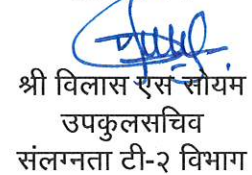 श्री विलास एस सोयम
उपकुलसचिव
संलग्नता टी-२ विभाग